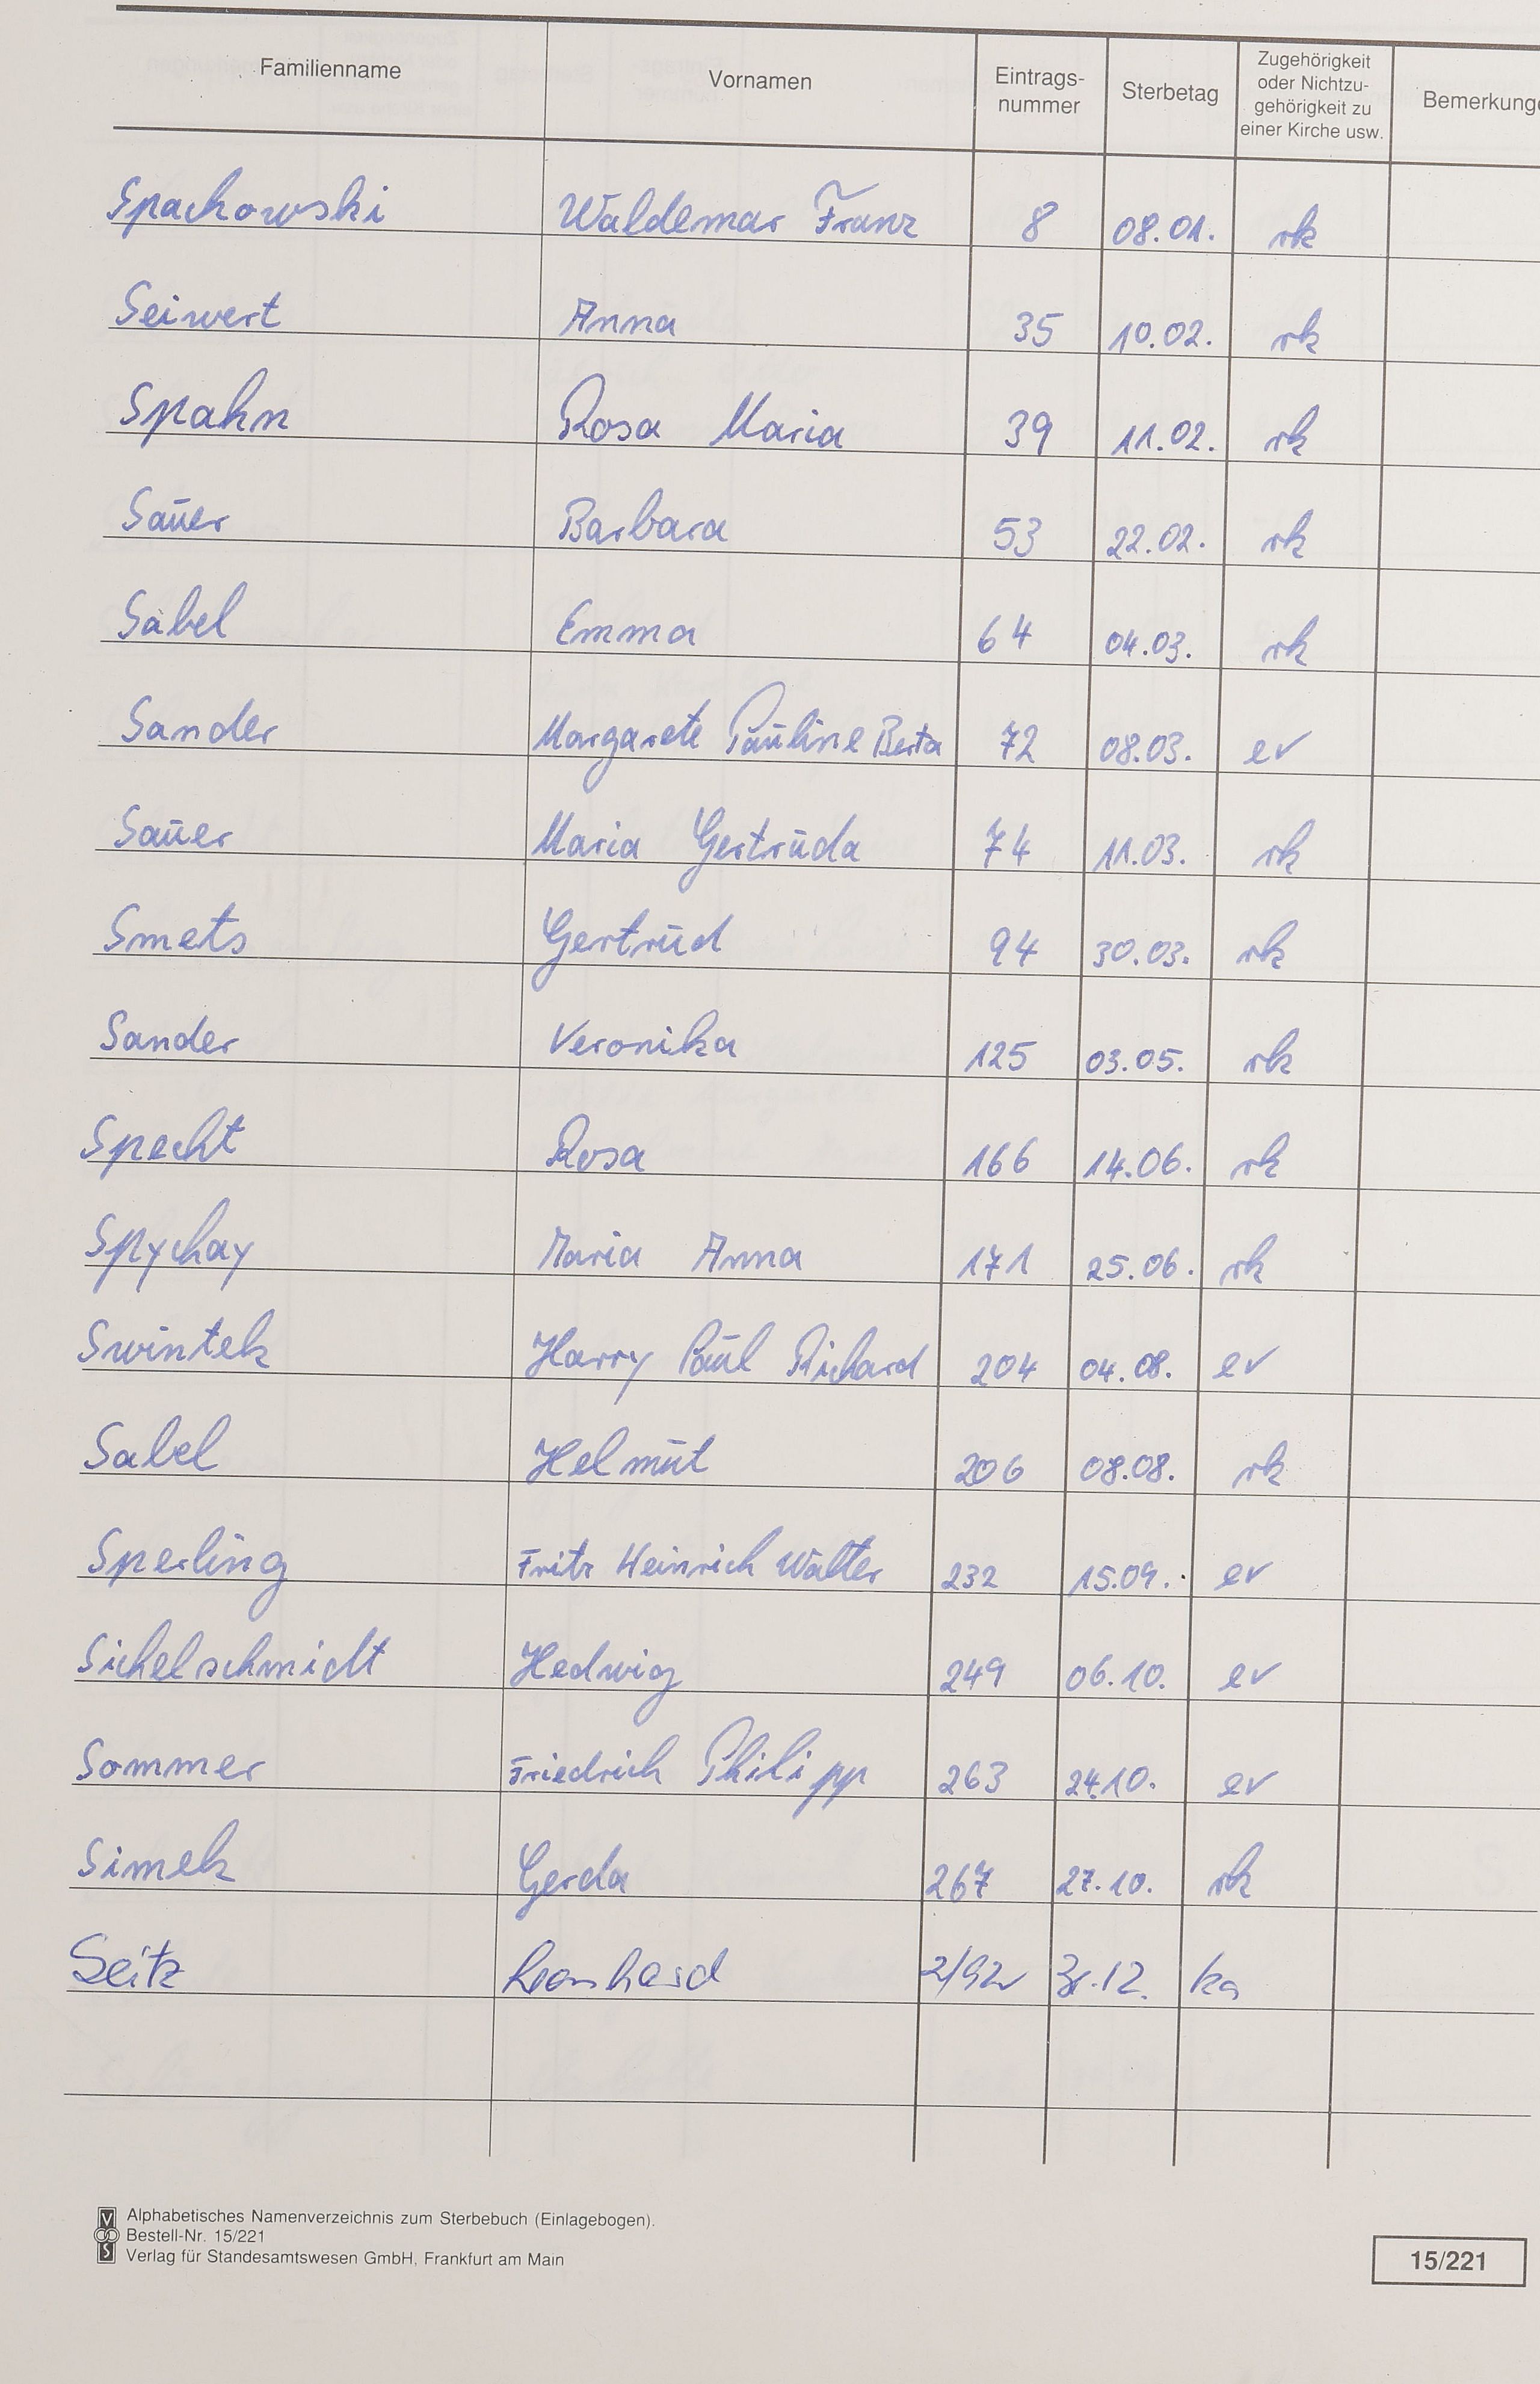 Familienname Vornamen Eintrags-nummer Sterbetag Zugehörigkeit oder Nichtzu-gehörigkeit zu einer Kirche usw. Bemerkunge
Spachowski Waldemar Franz 8 08.01. rk
Seiwert Anna 35 10.02. rk
Spahn Rosa Maria 39 11.02. rk
Sauer Barbara 53 22.02. rk
Sabel Emma 64 04.03. rk
Sander Margarete Pauline Berta 72 08.03. ev
Sauer Maria Gertruda 74 11.03. rk
Smets Gertrud 94 30.03. rk
Sander Veronika 125 03.05. rk
Specht Rosa 166 14.06. rk
Spychay Maria Anna 171 25.06. rk
Swintek Harry Paul Richard 204 04.08. ev
Sabel Helmut 206 08.08. rk
Sperling Fritz Heinrich Walter 232 15.09. ev
Sichelschmidt Hedwig 249 06.10. ev
Sommer Friedrich Philipp 263 24.10. ev
Simek Gerda 267 27.10. rk
Seitz Leonhard 2/92 31.12. ka
Alphabetisches Namenverzeichnis zum Sterbebuch (Einlagebogen).
Bestell-Nr. 15/221
Verlag für Standesamtswesen GmbH, Frankfurt am Main
15/221